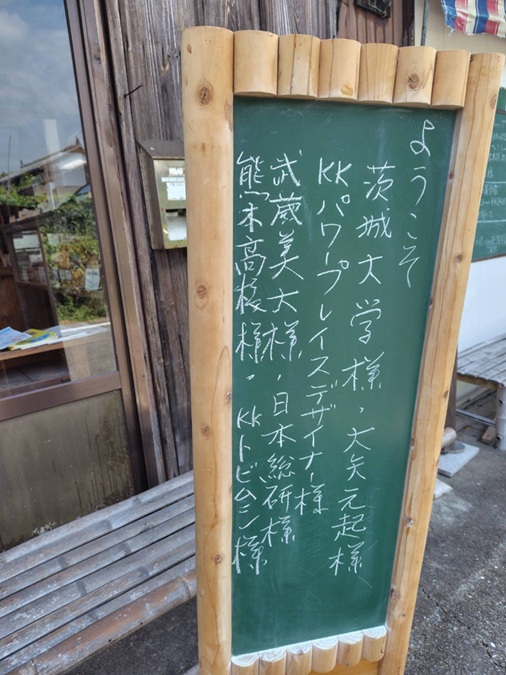 ようこそ
茨城大学様・大矢元起様
KKパワープレイスデザイナー様
武蔵美大様・日本総研様
熊本高校様・KKトビムシ様